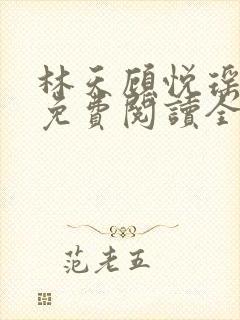 林天顾悦瑶
免費閱讀全
范老五